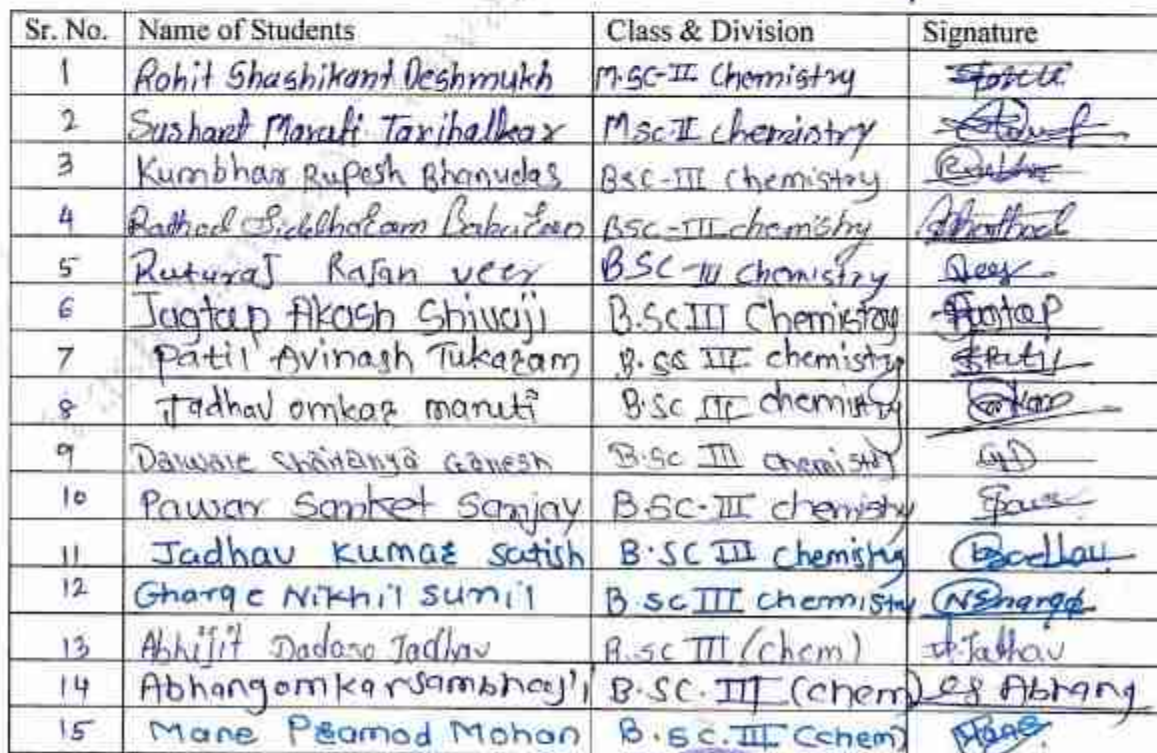 Sr. No. Name of Students Class & Division Signature
1 Rohit Shashikant Deshmukh M.SC-II Chemistry
2 Sushant Maruti Tarihalkar Msc-II chemistry
3 Kumbhar Rupesh Bhanudas BSC-III chemistry
4 Rathod BSC-III chemistry Rathod
5 Ruturaj Rajan veer BSC-III chemistry Veer
6 Jagtap Akash Shivaji B.Sc III Chemistry Jagtap
7 Patil Avinash Tukaram B.Sc III chemistry Patil
8 Jadhav omkar maruti B.Sc III chemistry
9 Chaitanya Ganesh B.Sc III chemistry
10 Pawar Sanket Sanjay B.SC-III chemistry
11 Jadhav Kumar Satish B.SC III chemistry
12 Gharge Nikhil Sunil B.sc III chemistry NGharge
13 Abhijit Dadaso Jadhav B.sc III (chem) A.Jadhav
14 Abhangomkarsambhaji B.SC. III (chem) Abhang
15 Mane Pramod Mohan B.Sc. III (chem) Mane